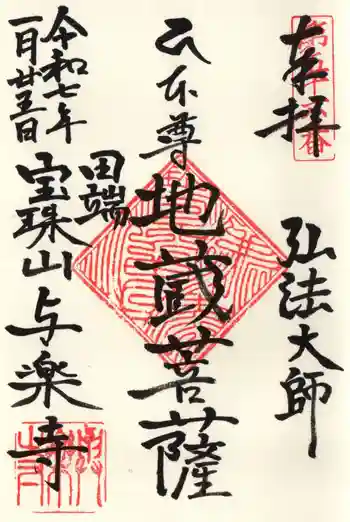 奉拝
弘法大師
本尊
地蔵菩薩
田端
宝珠山
与楽寺
令和七年
一月廿五日